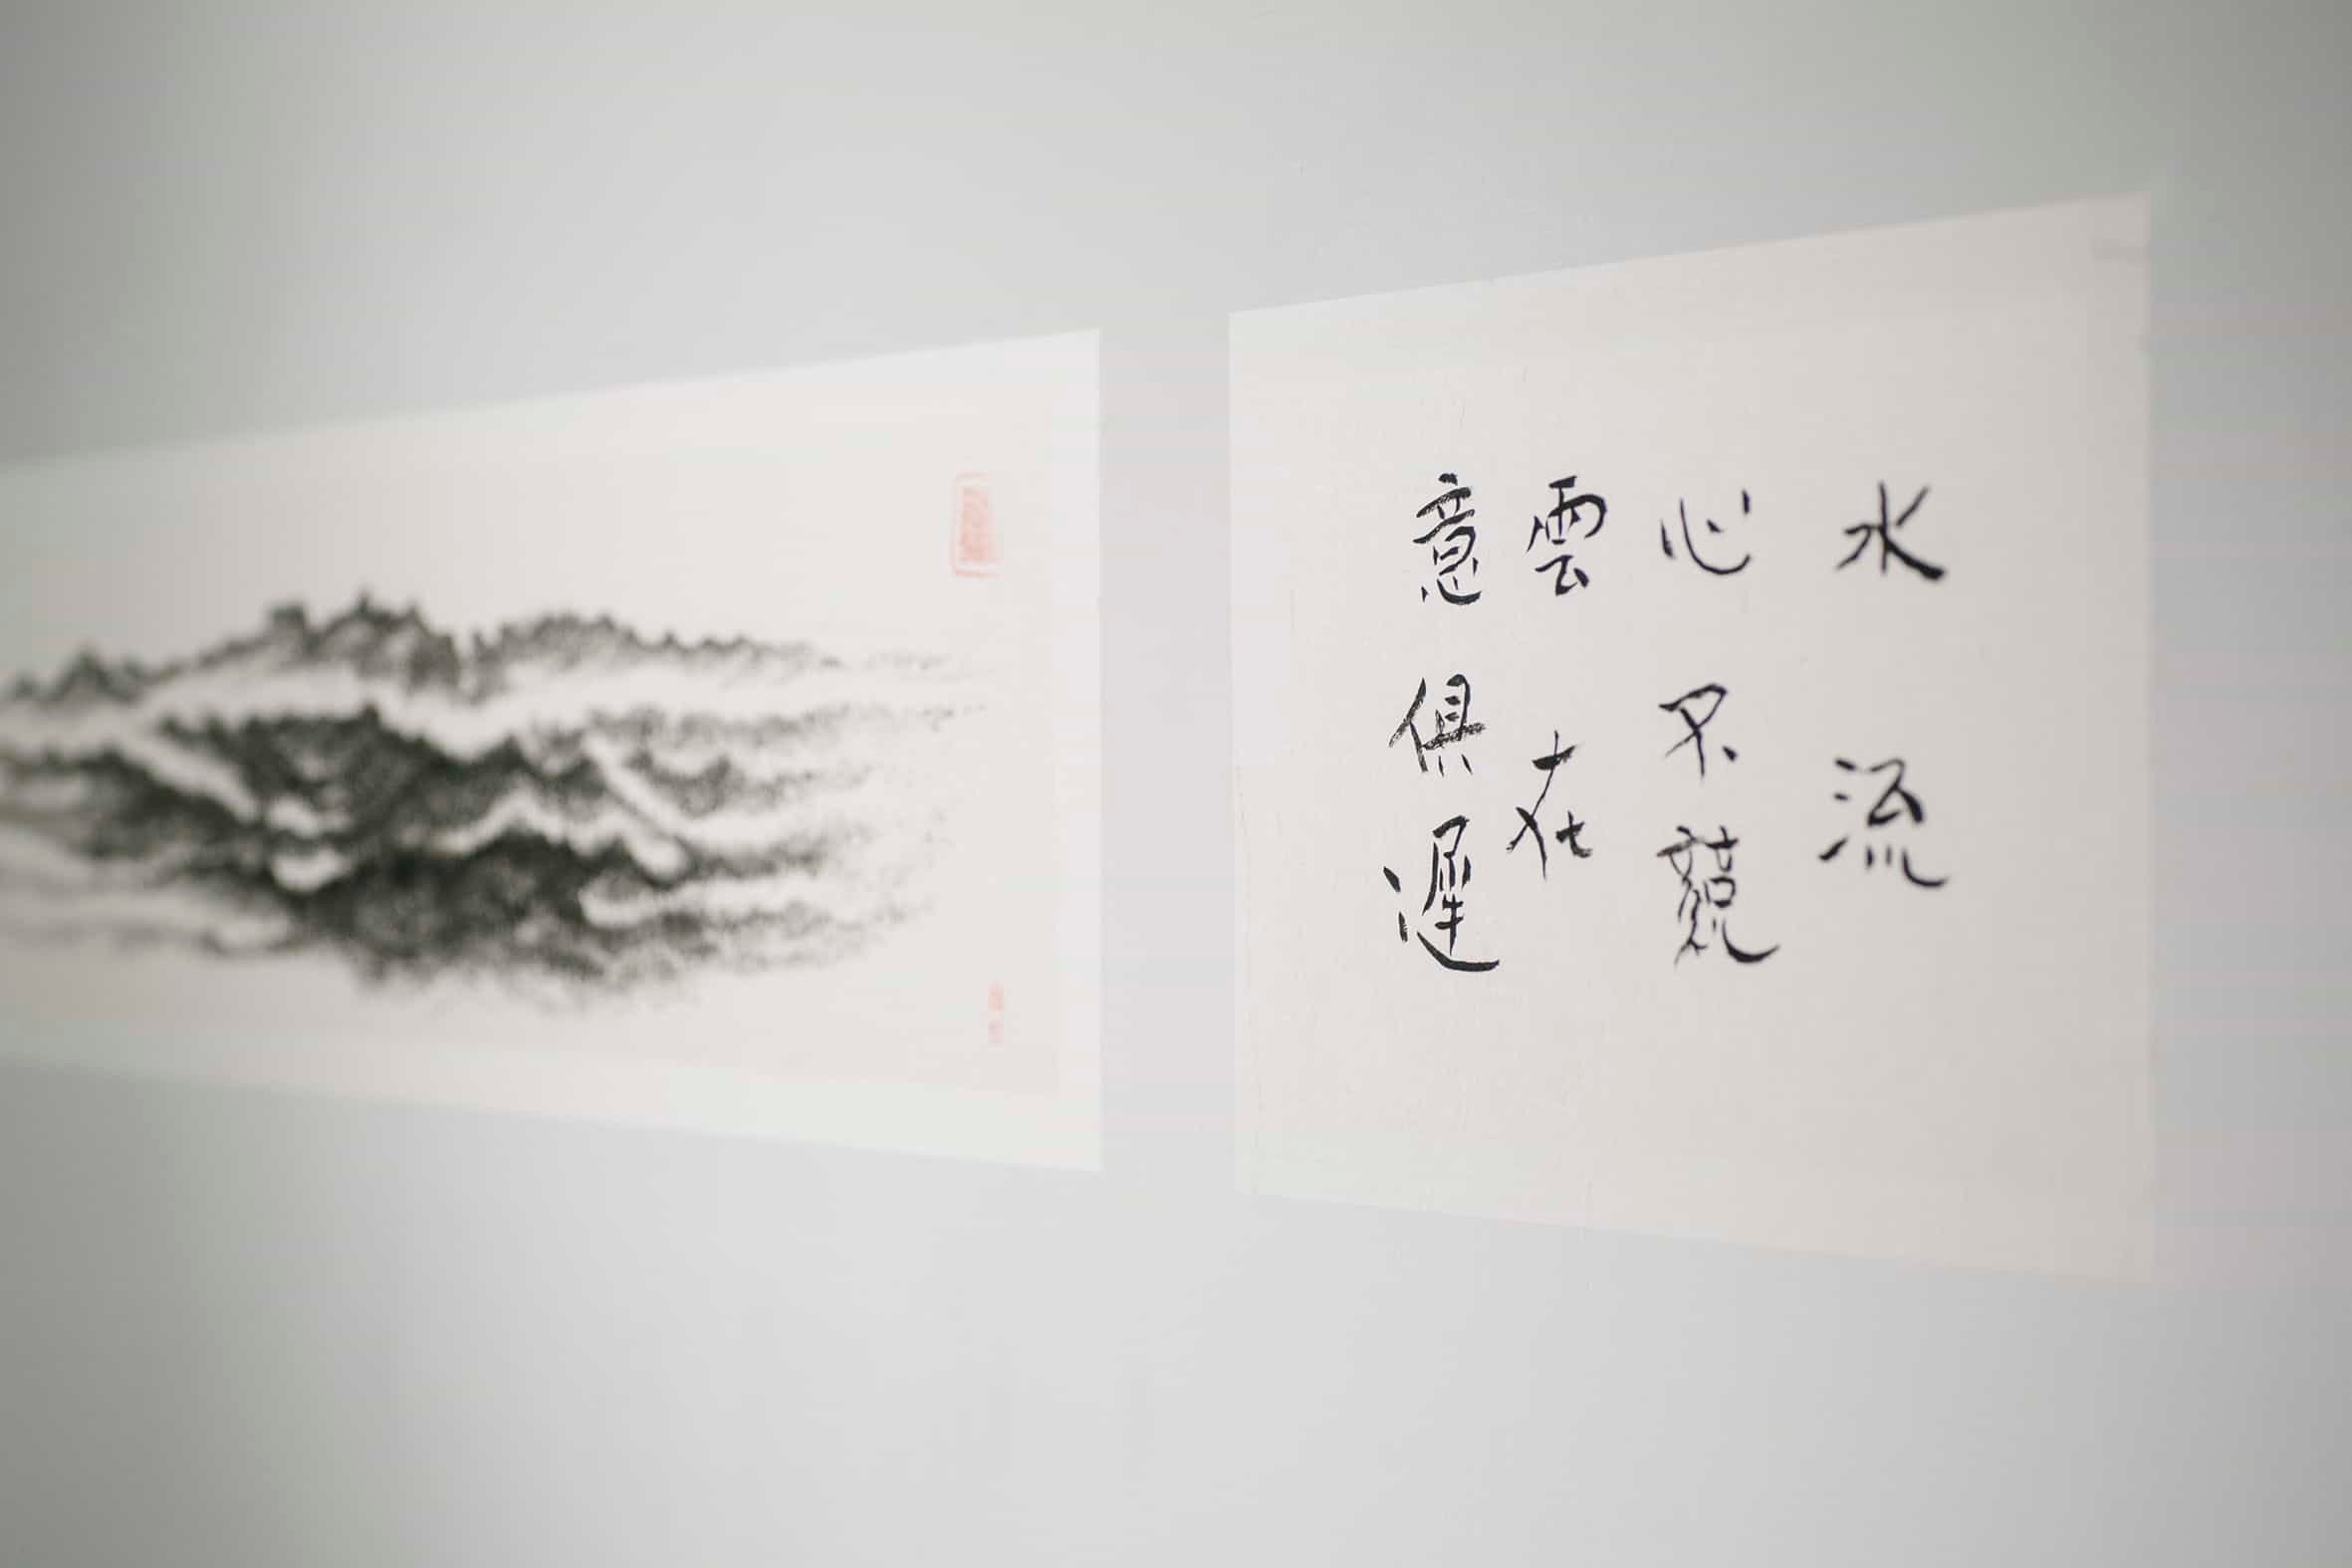 水流
心不競
雲在
意俱遲